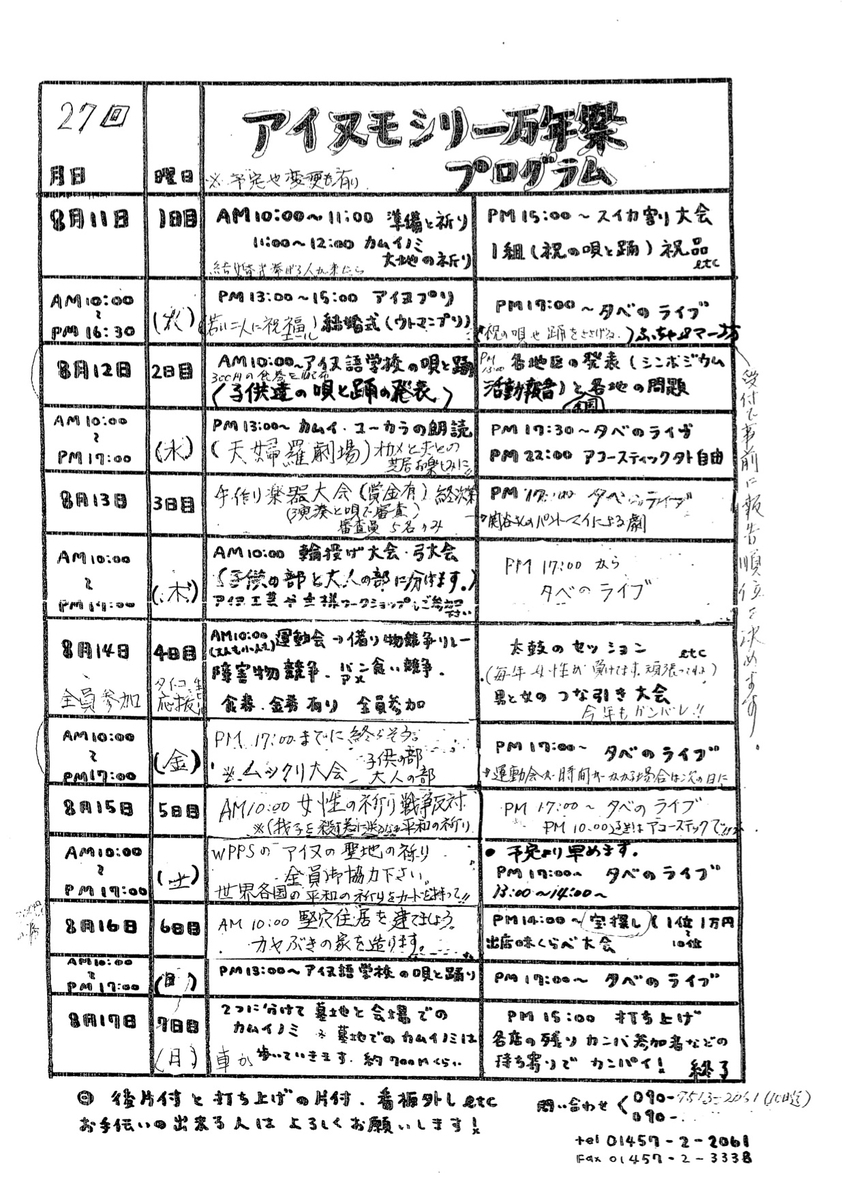 27回
アイヌモシリ一万年祭
プログラム
月日 曜日 ※予定や変更も有り
8月11日 1日目 AM10:00～11:00 準備と祈り
11:00～12:00 カムイノミ
大地の祈り
PM 15:00～スイカ割り大会
1組(祝の唄と踊)祝品
etc
AM10:00
～
PM16:30
(火)
PM13:00～15:00 アイヌプリ
(若い二人に祝福エール) 結婚式(ウトマンプリ)
PM17:00～夕べのライブ
8月12日 2日目 AM10:00～アイヌ語学校の唄と踊
(子供達の唄と踊の発表)
各地区の発表(シンポジウム
活動報告)と各地の問題
AM10:00
～
PM17:00
(水)
PM13:00～カムイ・ユーカラの朗読
(夫婦羅劇場)オカメとおとの
芝居お楽しみに
PM17:30～夕べのライヴ
PM22:00 アコースティックタト自由
8月13日 3日目 手作り楽器大会(賞金有)
(演奏と唄で審査)
審査員 5名のみ
PM17:00 夕べのライブ
AM10:00
～
PM17:00
(木)
AM10:00 輪投げ大会・弓大会
(子供の部と大人の部に分けます。)
PM 17:00 から
夕べの ライブ
8月14日 4日目 AM10:00 運動会→借り物競争リレー
障害物競争・パン食い競争・
アメ
食券・金券有り 全員参加
全員参加
応援
太鼓のセッション etc
男と女の つな引き大会
今年もガンバレ!!
AM10:00
～
PM17:00
(金)
PM 17:00までに終らそう。
※ムックリ大会 子供の部
大人の部
PM17:00～ 夕べのライブ
*運動会の時間がかかる場合は次の日に
8月15日 5日目 AM10:00 女性の祈り戦争反対
平和の祈り
PM 17:00～夕べのライブ
AM10:00
～
PM17:00
(土)
WPPSの アイヌの聖地の祈り
全員御協力下さい。
世界各国の平和の祈りをカードを持って!!
●予定より早めます。
PM17:00～ 夕べのライブ
13:00～14:00～
8月16日 6日目 AM 10:00 竪穴住居を建てましょう。
カヤぶきの家を造ります。
PM14:00～宝探し 1位1万円
～
10位
出店味くらべ大会
AM10:00
～
PM17:00
(日)
PM13:00～アイヌ語学校の唄と踊り
PM17:00～ 夕べのライブ
8月17日 7日目
(月)
2つに分けて墓地と会場での
カムイノミ ※墓地でのカムイノミは
車か歩いていきます。約700mくらい
PM 15:00 打ち上げ
各店の残りカンパ参加者などの
持ち寄りでカンパイ! 終了
受付で事前に報告順位を決めます。
◎ 後片付と打ち上げの片付・看板外しetc
お手伝いの出来る人はよろしくお願いします!
問い合わせ
090-
090-
tel 01457-2-2061
Fax 01457-2-3338